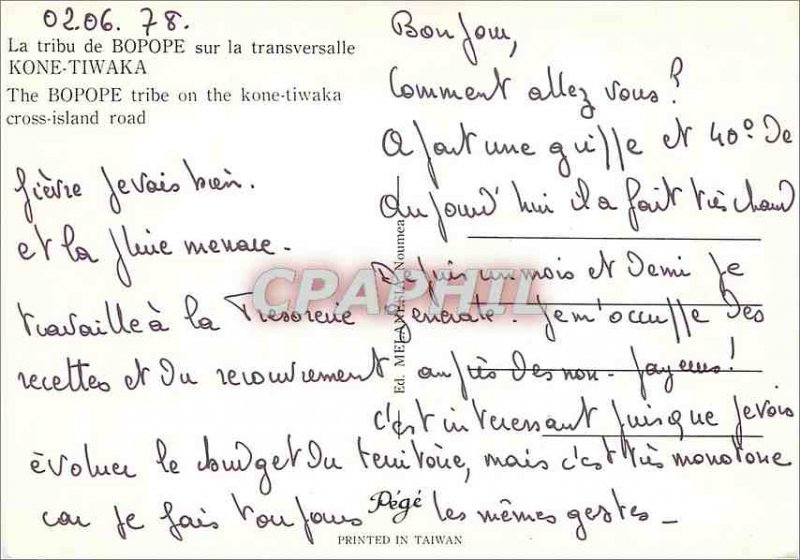 02.06. 78.
La tribu de BOPOPE sur la transversalle
KONE-TIWAKA
The BOPOPE tribe on the kone-tiwaka
cross-island road
Bonjour,
Comment allez vous?
A part une grippe et 40° de
fièvre je vais bien.
Aujourd'hui il a fait très chaud
et la pluie menace.
Depuis un mois et demi je
travaille à la Trésorerie Générale. Je m'occuppe des
recettes et du recouvrement auprès des non-payeurs!
c'est interessant puisque je vois
évoluer le budget du territoire, mais c'est très monotone
car je fais toujours les mêmes gestes_
Ed. MELANESIA Noumea
Pégé
PRINTED IN TAIWAN
CPAPHIL